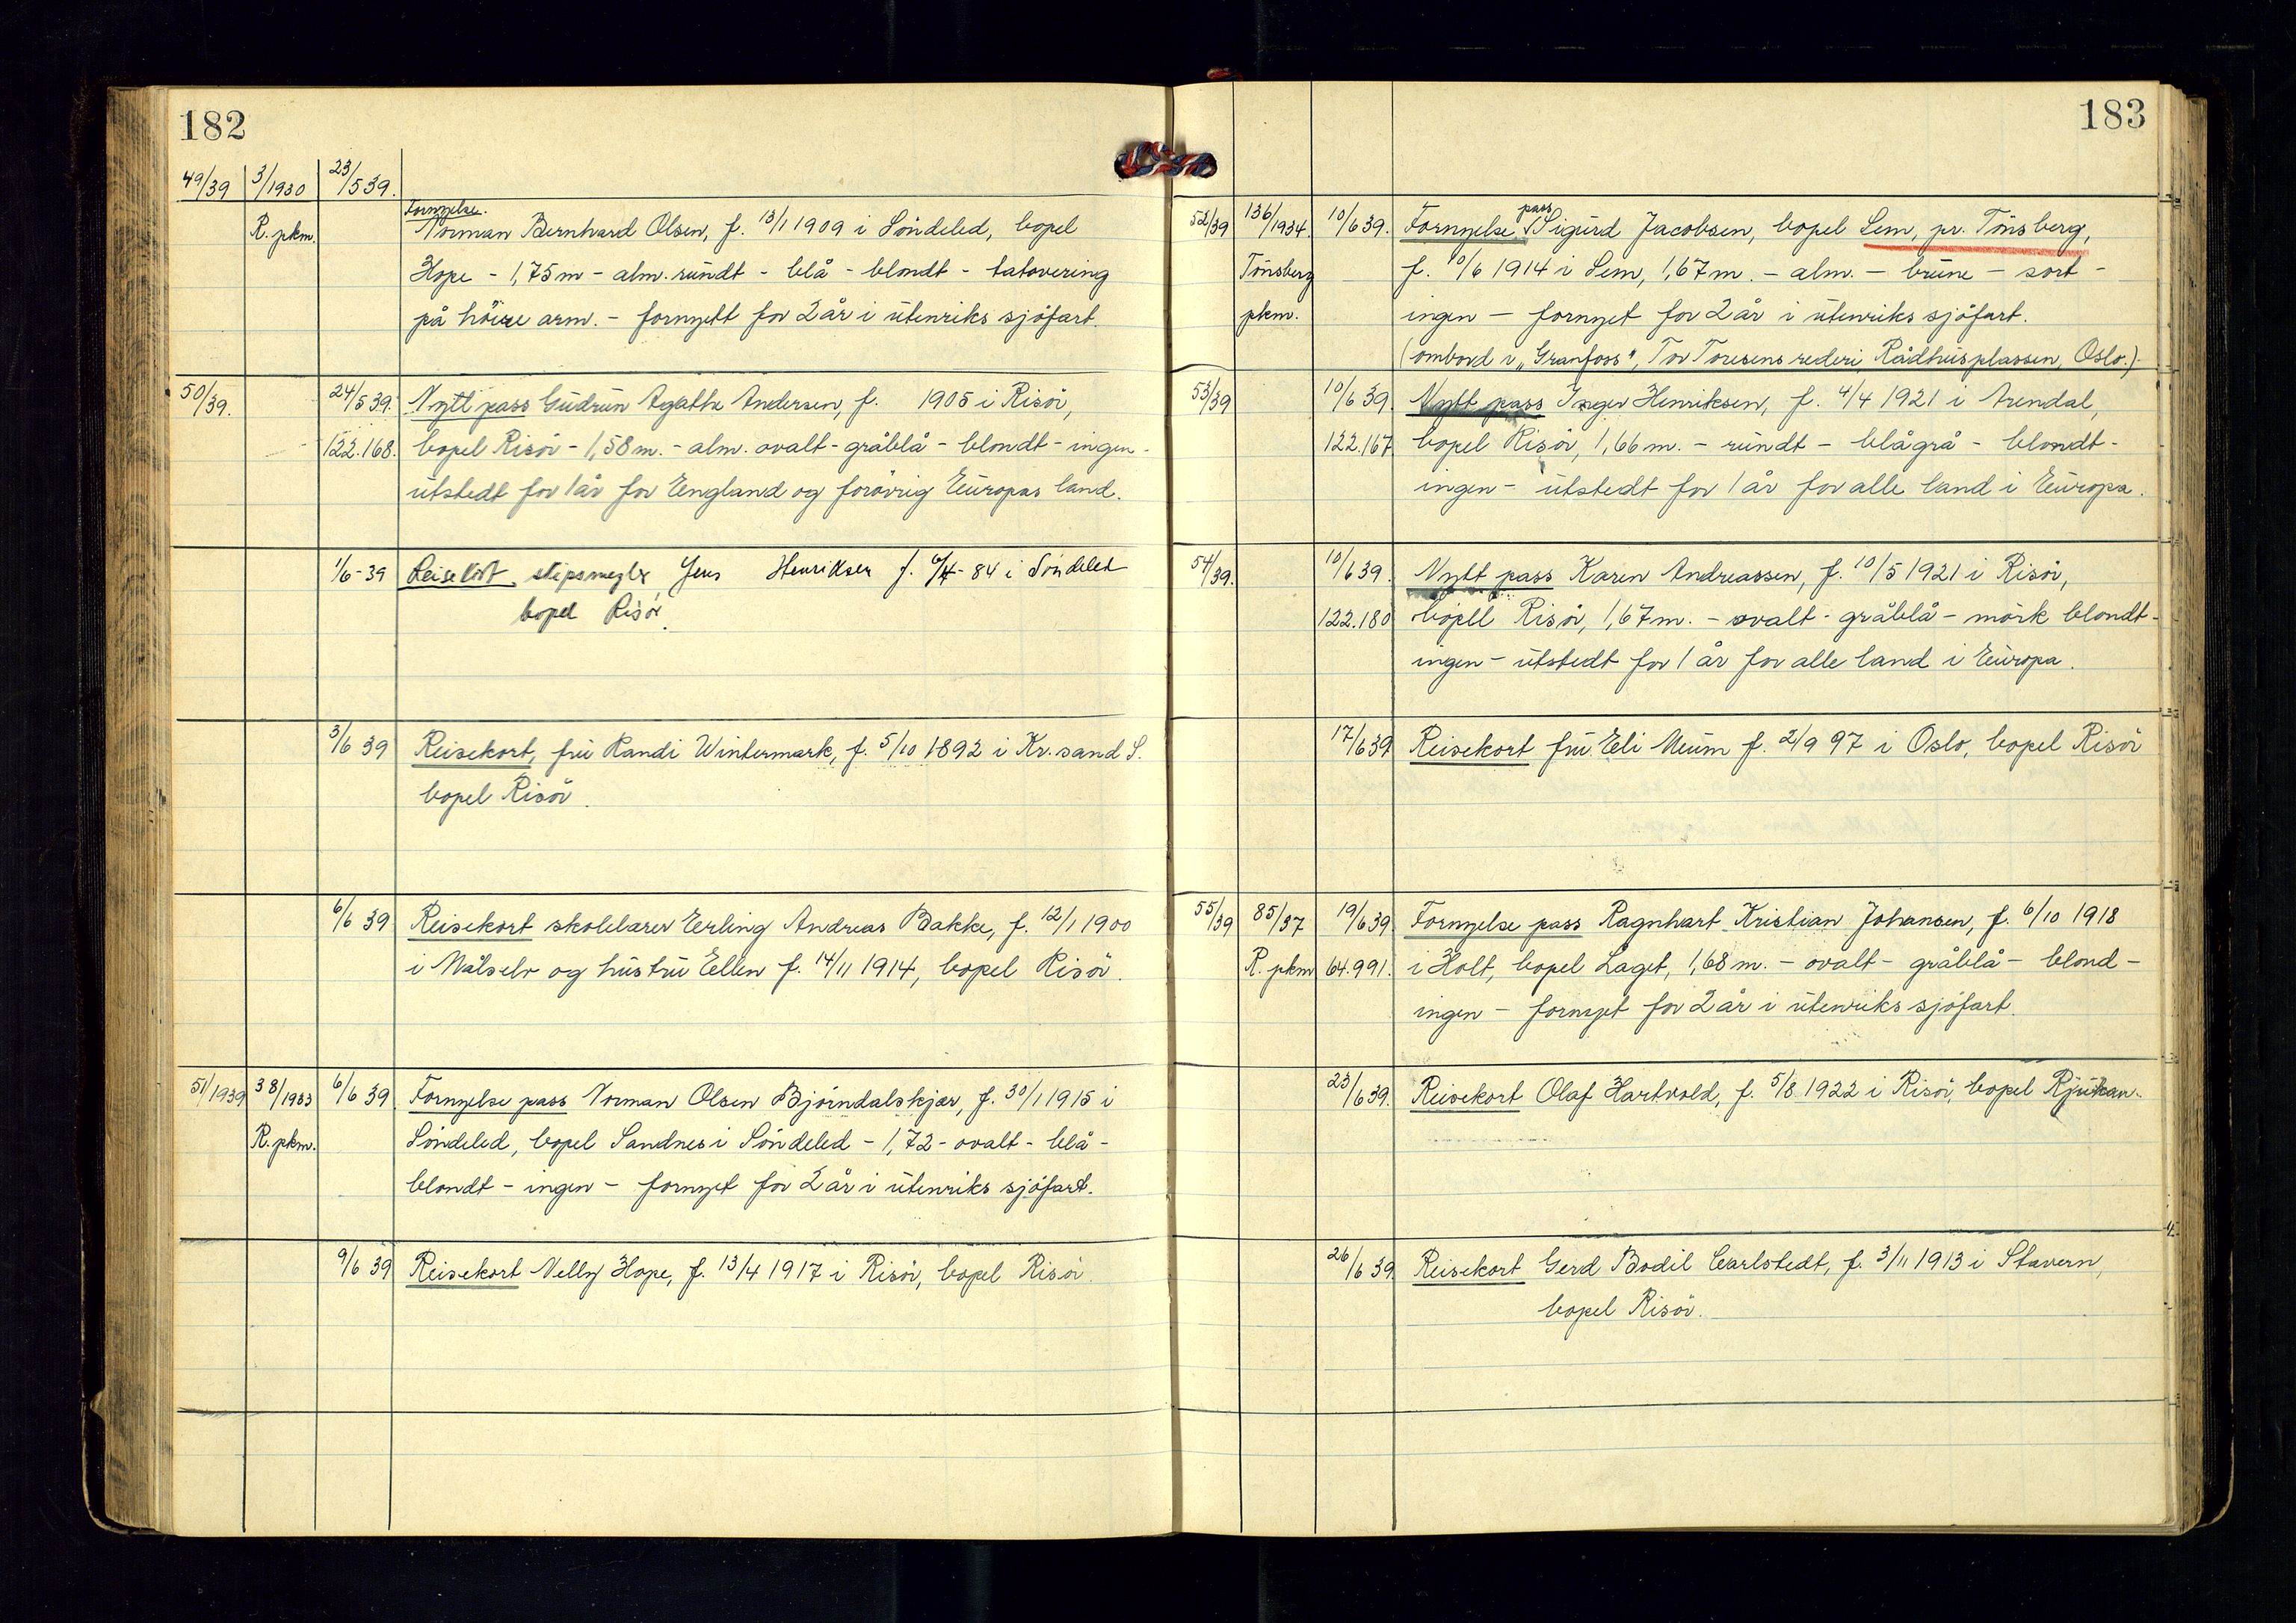 182
49/39 3/1930 23/5 39.
Fornyelse.
R. pkm. Norman Bernhard Olsen, f. 13/1 1909 i Söndeled, bopel
Hope - 1,75 m - alm. rundt - blå - blondt - tatovering
på höire arm. - fornyett for 2 år i utenriks sjöfart.
50/39. 24/5 39. Nytt pass Gudrun Agathe Andersen, f. 1905 i Risör,
122.168. bopel Risör - 1,58 m. - alm. ovalt - gråblå - blondt - ingen -
utstedt for 1 år for England og forövrig Europas land.
1/6-39 Reisekort skipsmegler Jens Henriksen f. - 84 i Söndeled
bopel Risör.
3/6 39 Reisekort, fru Randi Wintermark, f. 5/10 1892 i Kr.sand S.
bopel Risör.
6/6 39 Reisekort skolelærer Erling Andreas Bakke, f. 12/1 1900
i Målselv og hustru Ellen f. 14/11 1914, bopel Risör.
51/1939 38/1933 6/6 39. Fornyelse pass Norman Olsen Björndalskjær, f. 30/1 1915 i
R. pkm. Söndeled, bopel Sandnes i Söndeled - 1,72 - ovalt - blå -
blondt - ingen - fornyet for 2 år i utenriks sjöfart.
9/6 39 Reisekort Nelly Hope, f. 13/4 1917 i Risör, bopel Risör.
183
52/39 136/1934. 10/6 39. Fornyelse pass Sigurd Jacobsen, bopel Sem, pr. Tönsberg,
Tönsberg f. 10/6 1914 i Sem, 1,67 m. - alm. - brune - sort -
pkm. ingen - fornyet for 2 år i utenriks sjöfart.
(ombord i "Granfoss", Tor Toresens rederi Rådhusplassen, Oslo.)
53/39 10/6 39. Nytt pass Inger Henriksen, f. 4/4 1921 i Arendal,
122.167 bopel Risör, 1,66 m. - rundt - blågrå - blondt -
ingen - utstedt for 1 år for alle land i Europa.
54/39. 10/6 39. Nytt pass Karen Andreassen, f. 10/5 1921 i Risör,
122.180 bopell Risör, 1,67 m. - ovalt - gråblå - mörk blondt -
ingen - utstedt for 1 år for alle land i Europa.
17/6 39 Reisekort fru Eli Muum f. 2/9 97 i Oslo, bopel Risör
55/39 85/37 19/6 39 Fornyelse pass Ragnhart Kristian Johansen, f. 6/10 1918
R. pkm 64.991. i Holt, bopel Laget, 1,68 m. - ovalt - gråblå - blond -
ingen - fornyet for 2 år i utenriks sjöfart.
23/6 39. Reisekort Olaf Hartvold, f. 5/8 1922 i Risör, bopel Rjukan.
26/6 39 Reisekort Gerd Bodil Carlstedt, f. 3/11 1913 i Stavern,
bopel Risör.